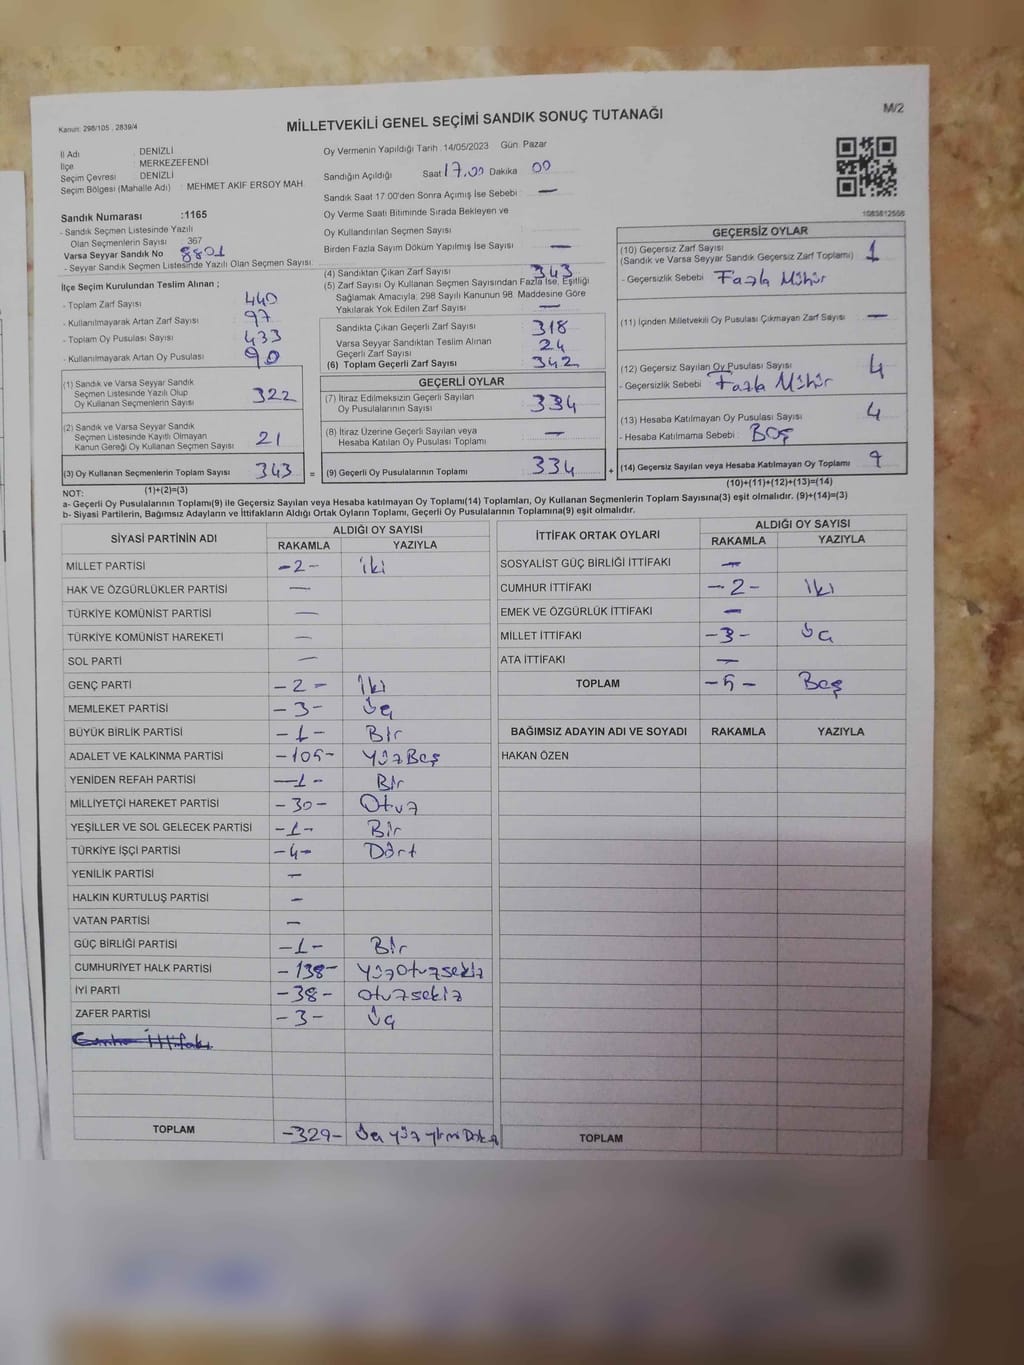 Kanun: 298/105 , 2839/4
MİLLETVEKİLİ GENEL SEÇİMİ SANDIK SONUÇ TUTANAĞI
M/2
İl Adı : DENİZLİ
İlçe : MERKEZEFENDİ
Seçim Çevresi : DENİZLİ
Seçim Bölgesi (Mahalle Adı) : MEHMET AKİF ERSOY MAH.
Oy Vermenin Yapıldığı Tarih :14/05/2023 Gün: Pazar
Sandığın Açıldığı Saat 17.00 Dakika 00
Sandık Saat 17:00'den Sonra Açımış İse Sebebi : —
Oy Verme Saati Bitiminde Sırada Bekleyen ve
Oy Kullandırılan Seçmen Sayısı
Birden Fazla Sayım Döküm Yapılmış İse Sayısı —
1083812556
Sandık Numarası :1165
- Sandık Seçmen Listesinde Yazılı
Olan Seçmenlerin Sayısı 367
Varsa Seyyar Sandık No 8801
- Seyyar Sandık Seçmen Listesinde Yazılı Olan Seçmen Sayısı:
İlçe Seçim Kurulundan Teslim Alınan ;
- Toplam Zarf Sayısı 440
- Kullanılmayarak Artan Zarf Sayısı 97
- Toplam Oy Pusulası Sayısı 433
- Kullanılmayarak Artan Oy Pusulası 90
(1) Sandık ve Varsa Seyyar Sandık
Seçmen Listesinde Yazılı Olup
Oy Kullanan Seçmenlerin Sayısı 322
(2) Sandık ve Varsa Seyyar Sandık
Seçmen Listesinde Kayıtlı Olmayan
Kanun Gereği Oy Kullanan Seçmen Sayısı 21
(3) Oy Kullanan Seçmenlerin Toplam Sayısı 343 =
(1)+(2)=(3)
(4) Sandıktan Çıkan Zarf Sayısı 343
(5) Zarf Sayısı Oy Kullanan Seçmen Sayısından Fazla İse, Eşitliği
Sağlamak Amacıyla; 298 Sayılı Kanunun 98. Maddesine Göre
Yakılarak Yok Edilen Zarf Sayısı —
Sandıkta Çıkan Geçerli Zarf Sayısı 318
Varsa Seyyar Sandıktan Teslim Alınan
Geçerli Zarf Sayısı 24
(6) Toplam Geçerli Zarf Sayısı 342
GEÇERLİ OYLAR
(7) İtiraz Edilmeksizin Geçerli Sayılan
Oy Pusulalarının Sayısı 334
(8) İtiraz Üzerine Geçerli Sayılan veya
Hesaba Katılan Oy Pusulası Toplamı —
(9) Geçerli Oy Pusulalarının Toplamı 334 +
GEÇERSİZ OYLAR
(10) Geçersiz Zarf Sayısı
(Sandık ve Varsa Seyyar Sandık Geçersiz Zarf Toplamı) 1
- Geçersizlik Sebebi : Fazla Mühür
(11) İçinden Milletvekili Oy Pusulası Çıkmayan Zarf Sayısı —
(12) Geçersiz Sayılan Oy Pusulası Sayısı 4
- Geçersizlik Sebebi : Fazla Mühür
(13) Hesaba Katılmayan Oy Pusulası Sayısı 4
- Hesaba Katılmama Sebebi : Boş
(14) Geçersiz Sayılan veya Hesaba Katılmayan Oy Toplamı 9
(10)+(11)+(12)+(13)=(14)
NOT:
a- Geçerli Oy Pusulalarının Toplamı(9) ile Geçersiz Sayılan veya Hesaba katılmayan Oy Toplamı(14) Toplamları, Oy Kullanan Seçmenlerin Toplam Sayısına(3) eşit olmalıdır. (9)+(14)=(3)
b- Siyasi Partilerin, Bağımsız Adayların ve İttifakların Aldığı Ortak Oyların Toplamı, Geçerli Oy Pusulalarının Toplamına(9) eşit olmalıdır.
SİYASİ PARTİNİN ADI ALDIĞI OY SAYISI
RAKAMLA YAZIYLA
MİLLET PARTİSİ -2- iki
HAK VE ÖZGÜRLÜKLER PARTİSİ —
TÜRKİYE KOMÜNİST PARTİSİ —
TÜRKİYE KOMÜNİST HAREKETİ —
SOL PARTİ —
GENÇ PARTİ -2- İki
MEMLEKET PARTİSİ -3- Üç
BÜYÜK BİRLİK PARTİSİ -1- Bir
ADALET VE KALKINMA PARTİSİ -105- YüzBeş
YENİDEN REFAH PARTİSİ -1- Bir
MİLLİYETÇİ HAREKET PARTİSİ -30- Otuz
YEŞİLLER VE SOL GELECEK PARTİSİ -1- Bir
TÜRKİYE İŞÇİ PARTİSİ -4- Dört
YENİLİK PARTİSİ —
HALKIN KURTULUŞ PARTİSİ —
VATAN PARTİSİ —
GÜÇ BİRLİĞİ PARTİSİ -1- Bir
CUMHURİYET HALK PARTİSİ -138- Yüzotuzsekiz
İYİ PARTİ -38- otuzsekiz
ZAFER PARTİSİ -3- Üç
İttifakı
TOPLAM -329- Üç yüz yirmi Dokuz
İTTİFAK ORTAK OYLARI ALDIĞI OY SAYISI
RAKAMLA YAZIYLA
SOSYALİST GÜÇ BİRLİĞİ İTTİFAKI —
CUMHUR İTTİFAKI -2- İki
EMEK VE ÖZGÜRLÜK İTTİFAKI —
MİLLET İTTİFAKI -3- Üç
ATA İTTİFAKI —
TOPLAM -5- Beş
BAĞIMSIZ ADAYIN ADI VE SOYADI RAKAMLA YAZIYLA
HAKAN ÖZEN
TOPLAM